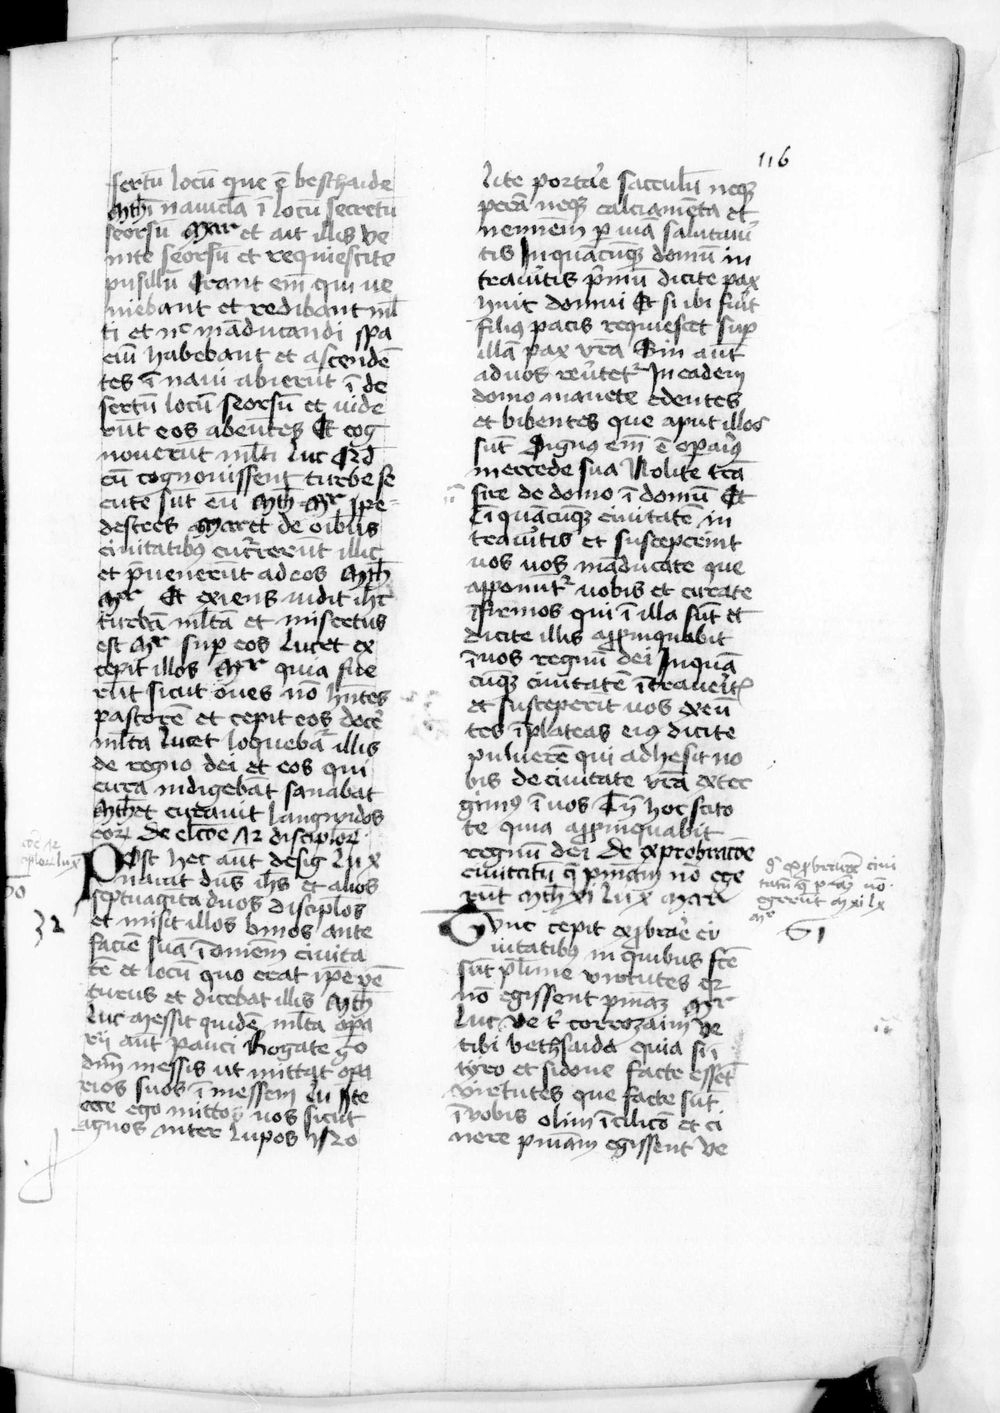 116
sertū locū que ē bethsaide
Mth̄ in nauicla ī locū secretū
seorsū Mar et ait illis ve
nite seorsū et requiescite
pusillū Erant em̄ qui ve
niebant et redibant ml̄
ti et nc māducandi spa
ciū habebant et ascendē
tes ī naui abierūt ī de
sertū locū seorsū et uide
rūt eos abeūtes Et cog
nouerūt ml̄ti Luc Qd̄
cū cognouissent turbe se
cute sūt eū Mth̄ Mr pe=
destres Mar et de oībus
ciuitatibꝯ cucr̄rerūt illic
et p̄uenerūt ad eos Mth̄
Mr Et exiens uidit ih̄c
turbā ml̄tā et misertus
est Mr sup eos Luc et ex
cepit illos Mr quia fue
rūt sicut oues nō hn̄tes
pastorē et cepit eos docē
ml̄ta Luc et loquebar̄ illis
de regno dei et eos qui
cura indigebāt sanabat
Mth̄ et curauit languidos
eorꝝ De elc̄oe 72 disciplorꝝ
Post hec aut̄ desig Lu x
nauit dn̄s ih̄s et alios
septuaginta duos disciplos
et misit illos binos ante
faciē suā ī omnem ciuita
tē et locū quo erat ip̄e vē
turus et dicebat illis Mth̄
Luc Messis quidē ml̄ta opa
rij aut̄ pauci Rogate go
dn̄m messis ut mittat opa
rios suos ī messem Lu Ite
ecce ego mitto uos sicut
agnos inter lupos No
lite portar̄e sacculū neqꝫ
perā neqꝫ calciamēta et
neminem p uia salutaūi
tis In quācūqꝫ domū in
traūtis pr̄mū dicite pax
huic domui Et si ibi fūit
filiꝯ pacis requiescet sup
illā pax vrā Sin aut̄
ad uos reūtetr In eadem
domo manete edentes
et bibentes que aput illos
sūt Dignꝯ em̄ ē oparīꝯ
mercede sua Nolite trā
sire de domo ī domū Et
ī quācūqꝫ ciuitatē in
traūtis et susceperint
uos uos māducate que
apponūtr uobis et curate
īfirmos qui ī illa sūt et
dicite illis appinquabit
ī uos regnū dei In quā
cūqꝫ ciuitatē ītrauerit̄
et susceperit uos exeū
tes ī plateas eiꝯ dicite
puluerē qui adhesit no
bis de ciuitate vrā exter
gimꝯ ī uos Tn̄ hoc scito
te quia appinquabit
regnū dei De exprobrac̄oe
ciuitatū q̄ pniam nō ege
rūt Mth̄ xi Lu x Mar
Tunc cepit exprobrar̄e ci
uitatibꝯ in quibus fc̄e
sūt pl̄ime virtutes eꝯ
nō egissent pniaꝫ Mr
Luc Ve t̄ corrozaim ve
tibi bethsaida quia si ī
tyro et sidone facte essēt
virtutes que facte sūt
ī vobis olim ī cilicō et ci
nere pniam egissent Ve
32
61